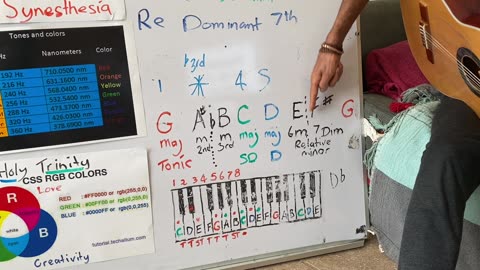 Synesthesia
Tones and colors
Hz Nanometers Color
192 Hz 710.0500 nm Red
216 Hz 631.1556 nm Orange
240 Hz 568.0400 nm Yellow
256 Hz 532.5400 nm Green
288 Hz 473.3700 nm Blue
320 Hz 426.0300 nm
360 Hz 378.6930 nm
Re Dominant 7th
b3rd
1 4 5
G A b B C D E # G
m m maj maj 6m 7 Dim
maj 2nd 3rd SD D Relative
Tonic minor
Holy Trinity
CSS RGB COLORS
Love
RED: #FF0000 or rgb(255,0,0)
GREEN: #00FF00 or rgb(0,255,0)
BLUE: #0000FF or rgb(0,0,255)
R
B
tutorial.techaltum.com
Creativity
1 2 3 4 5 6 7 8
C D E F G A B C D E F G A B C D E
T T S T T T S
Db